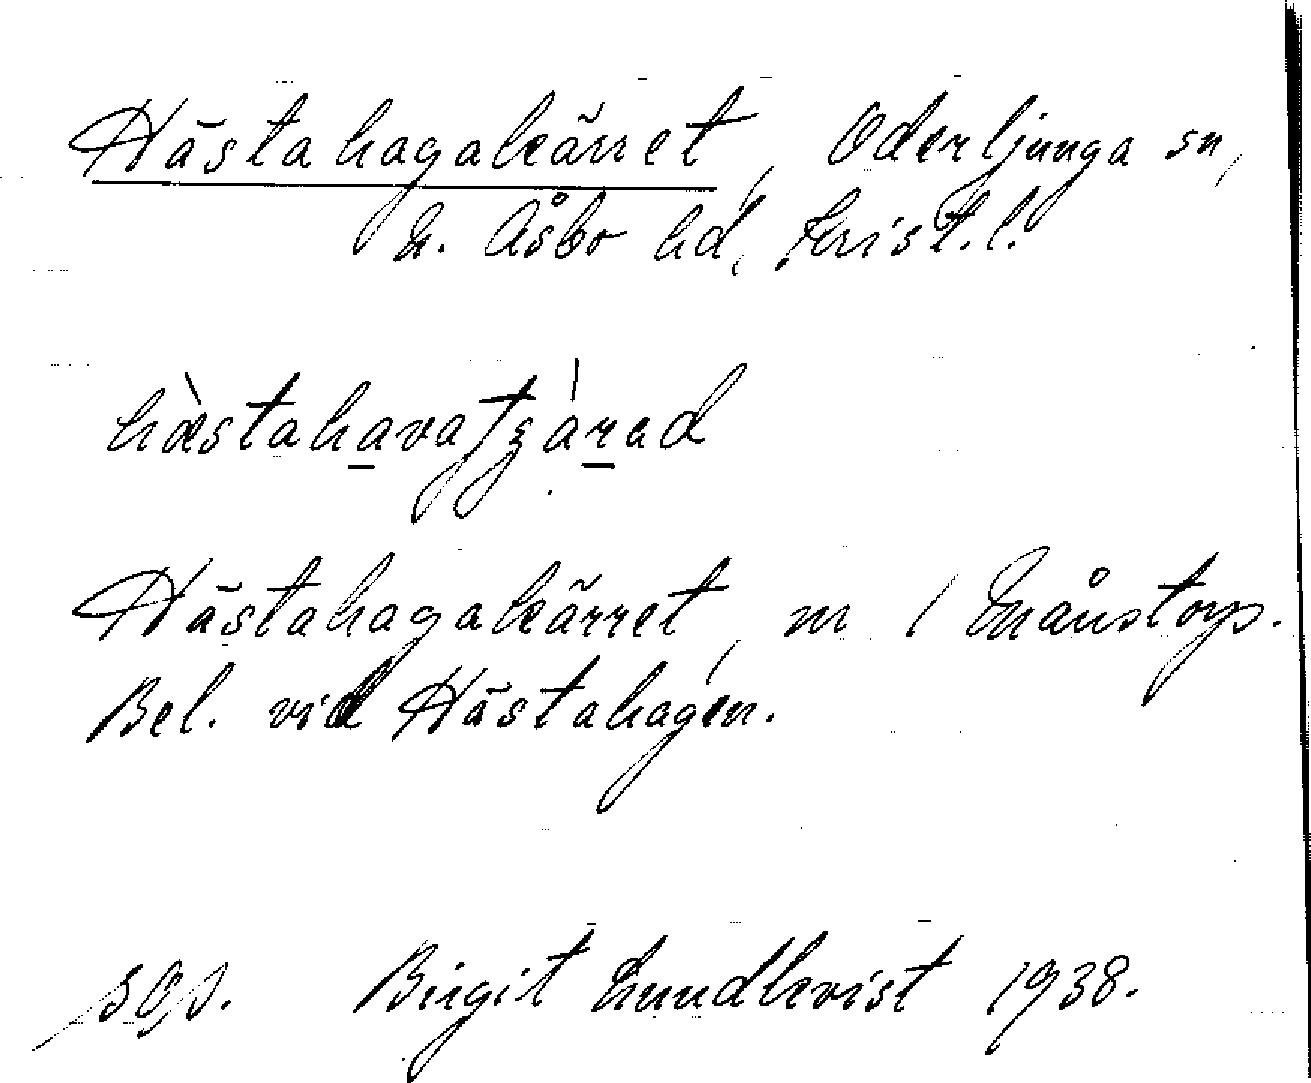 Hästahagakärret, Oderljunga sn,
N. Åsbo hd, Krist. l.
hæ̀stahavatʃàrad
Hästahagakärret, m / Månstorp.
Bel. vid Hästahagen.
Birgit Lundkvist 1938.